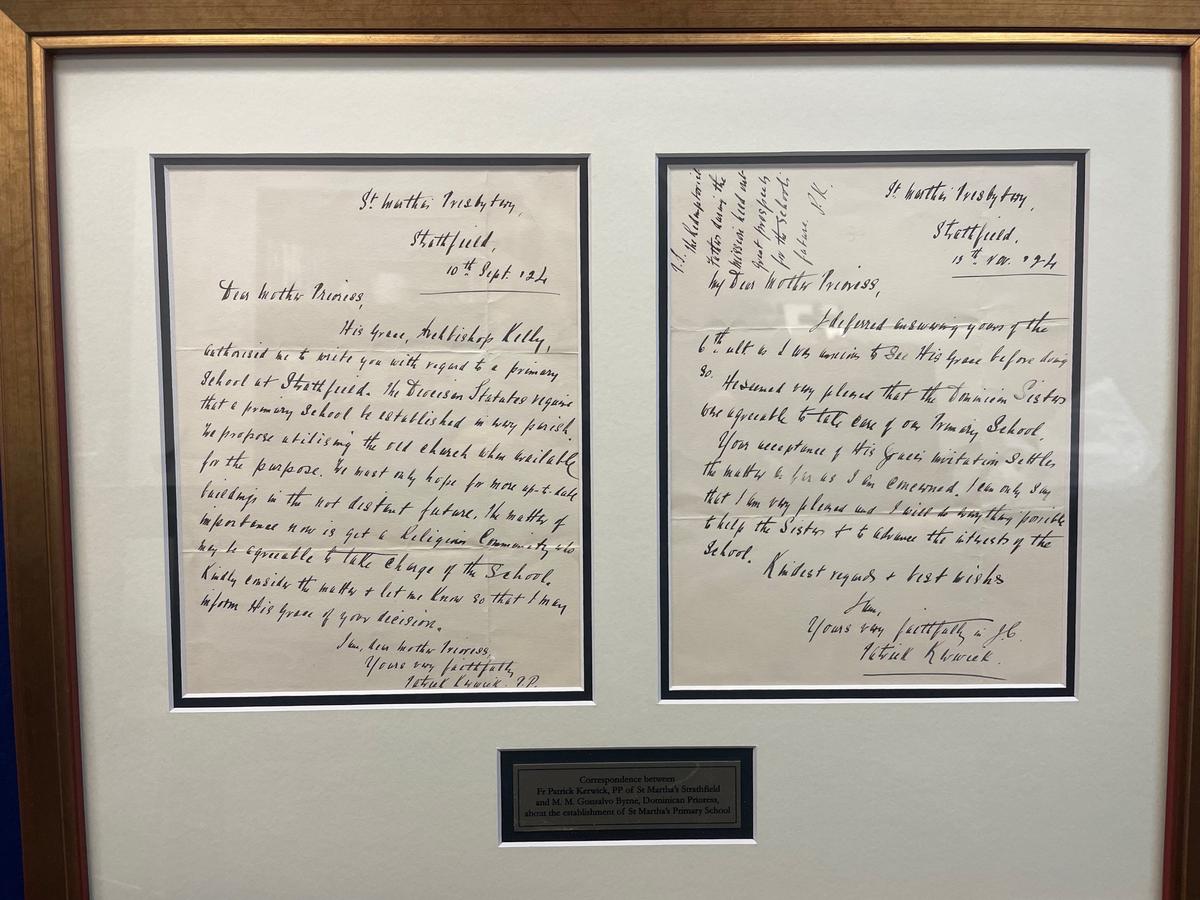 St. Martha's Presbytery,
Strathfield,
10th Sept. '24
Dear Mother Prioress,
His Grace, Archbishop Kelly,
authorised me to write you with regard to a primary
School at Strathfield. The Diocesan Statutes require
that a primary School be established in every parish.
We propose utilising the old church when available
for the purpose. We must only hope for more up-to-date
buildings in the not distant future. The matter of
importance now is get a Religious Community who
may be agreeable to take charge of the School.
Kindly consider the matter & let me know so that I may
inform His Grace of your decision.
I am, dear Mother Prioress,
Yours very faithfully
Patrick Kerwick. P.P.
St. Martha's Presbytery,
Strathfield,
13th Nov. '24
My Dear Mother Prioress,
I deferred answering yours of the
6th ult as I was anxious to see His Grace before doing
so. He seemed very pleased that the Dominican Sisters
were agreeable to take care of our Primary School.
Your acceptance of His Grace's invitation settles
the matter as far as I am concerned. I can only say
that I am very pleased and I will do everything possible
to help the Sisters & to advance the interests of the
School.
Kindest regards & best wishes
I am,
Yours very faithfully in J.C.
Patrick Kerwick.
P.S. The Redemptorist
Father during the
mission held out
great prospects
for the School's
future. P.K.
Correspondence between
Fr Patrick Kerwick, PP of St Martha's Strathfield
and M. M. Gonsalvo Byrne, Dominican Prioress,
about the establishment of St Martha's Primary School